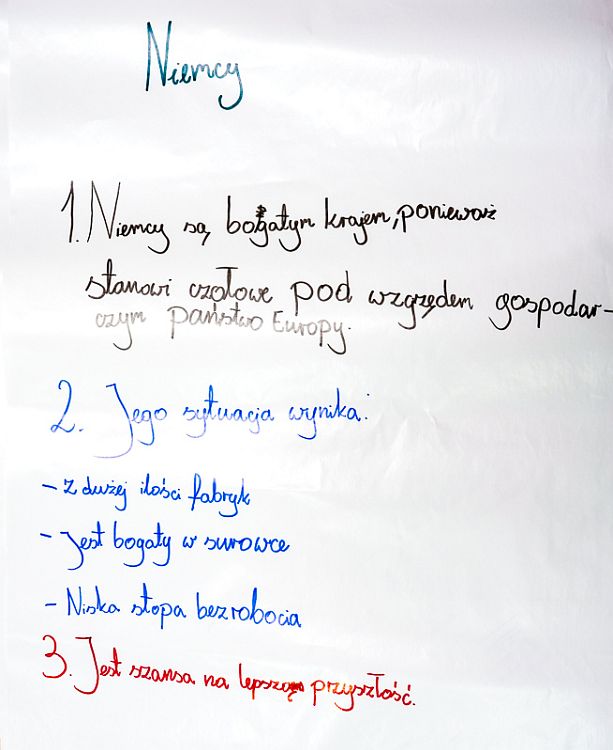 Niemcy
1. Niemcy są bogatym krajem, ponieważ
stanowi czołowe pod względem gospodar-
czym państwo Europy.
2. Jego sytuacja wynika:
- z dużej ilości fabryk
- Jest bogaty w surowce
- Niska stopa bezrobocia
3. Jest szansa na lepszą przyszłość.